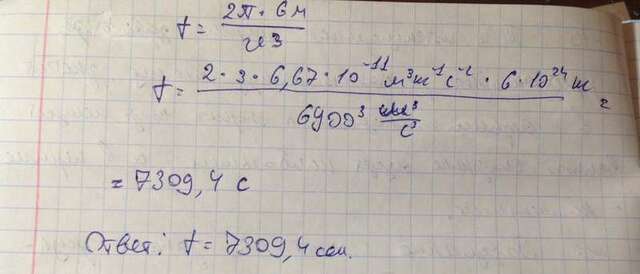 t = 2π · G м / υ³
t = 2 · 3 · 6,67 · 10⁻¹¹ м³кг⁻¹с⁻² · 6 · 10²⁴ кг / 6900³ м³/с³ =
= 7309,4 с
Ответ: t = 7309,4 сек.